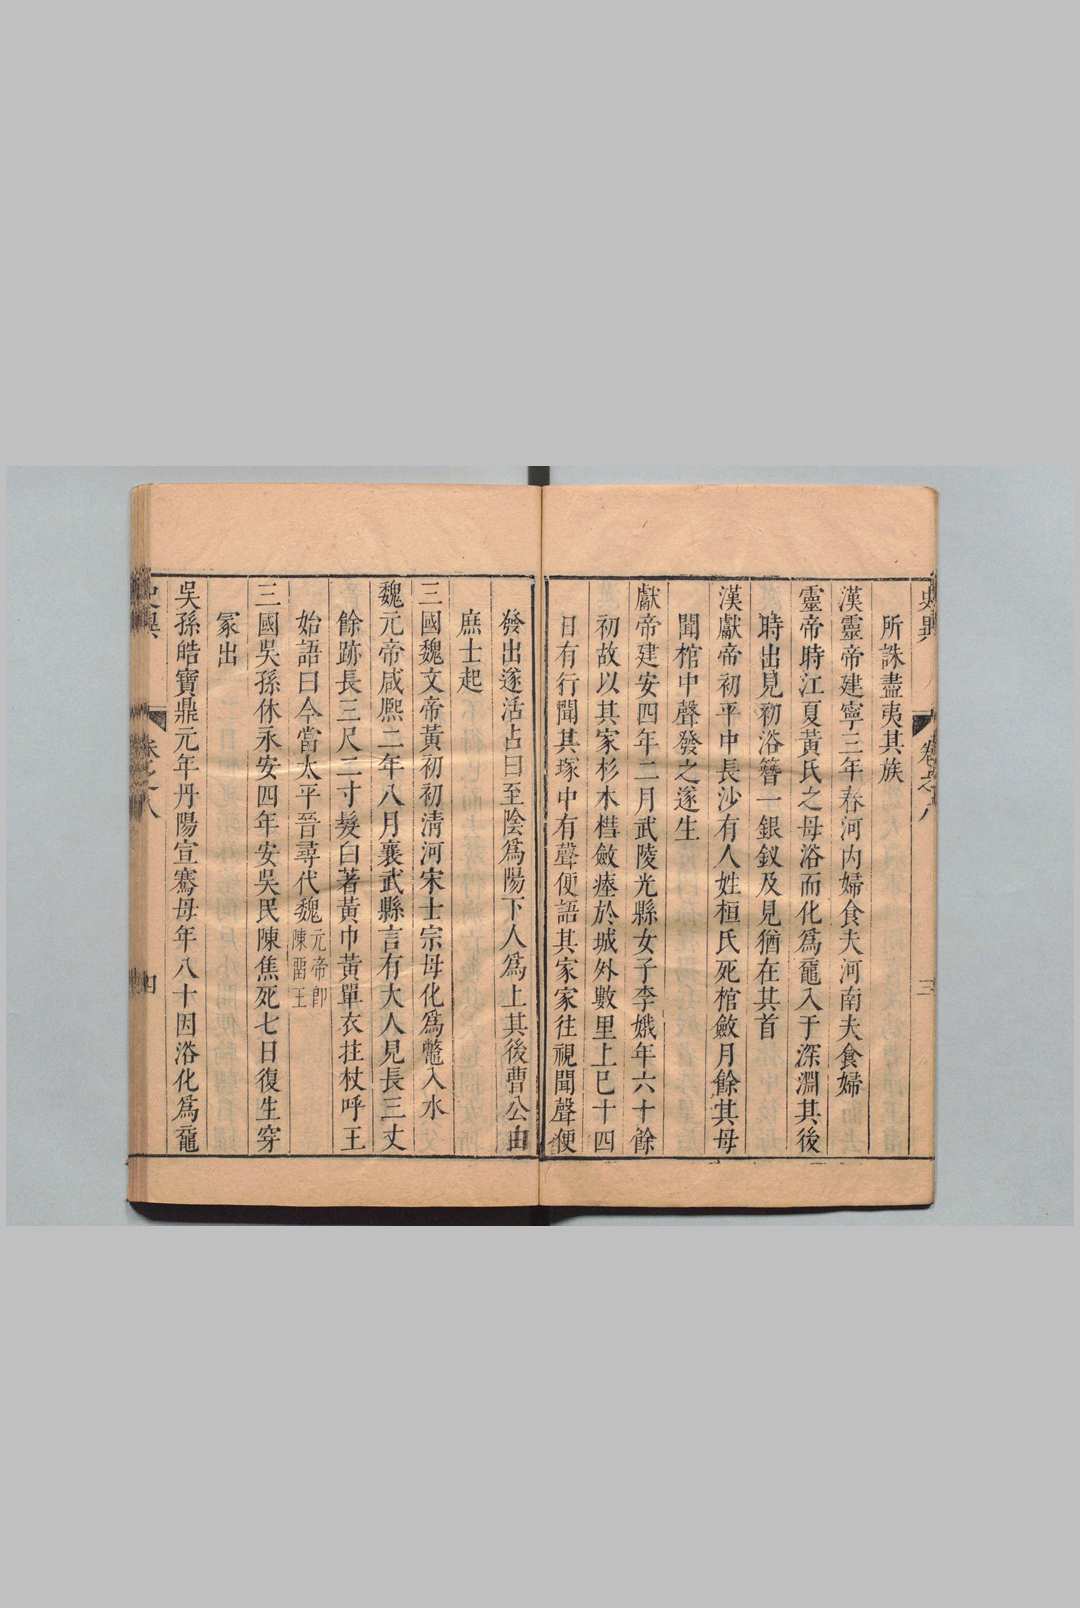 史異
卷之八
三
所誅盡夷其族
漢靈帝建寧三年春河內婦食夫河南夫食婦
靈帝時江夏黃氏之母浴而化爲黿入于深淵其後
時出見初浴簪一銀釵及見猶在其首
漢獻帝初平中長沙有人姓桓氏死棺斂月餘其母
聞棺中聲發之遂生
獻帝建安四年二月武陵充縣女子李娥年六十餘
初故以其家杉木槥斂瘞於城外數里上巳十四
日有行聞其塚中有聲便語其家家往視聞聲便
發出遂活占曰至陰爲陽下人爲上其後曹公由
庶士起
三國魏文帝黃初初清河宋士宗母化爲鼈入水
魏元帝咸熙二年八月襄武縣言有大人見長三丈
餘跡長三尺二寸髮白著黃巾黃單衣拄杖呼王
始語曰今當太平晉尋代魏元帝卽陳畱王
三國吳孫休永安四年安吳民陳焦死七日復生穿
冢出
吳孫皓寶鼎元年丹陽宣騫母年八十因浴化爲黿
史異
卷之八
四